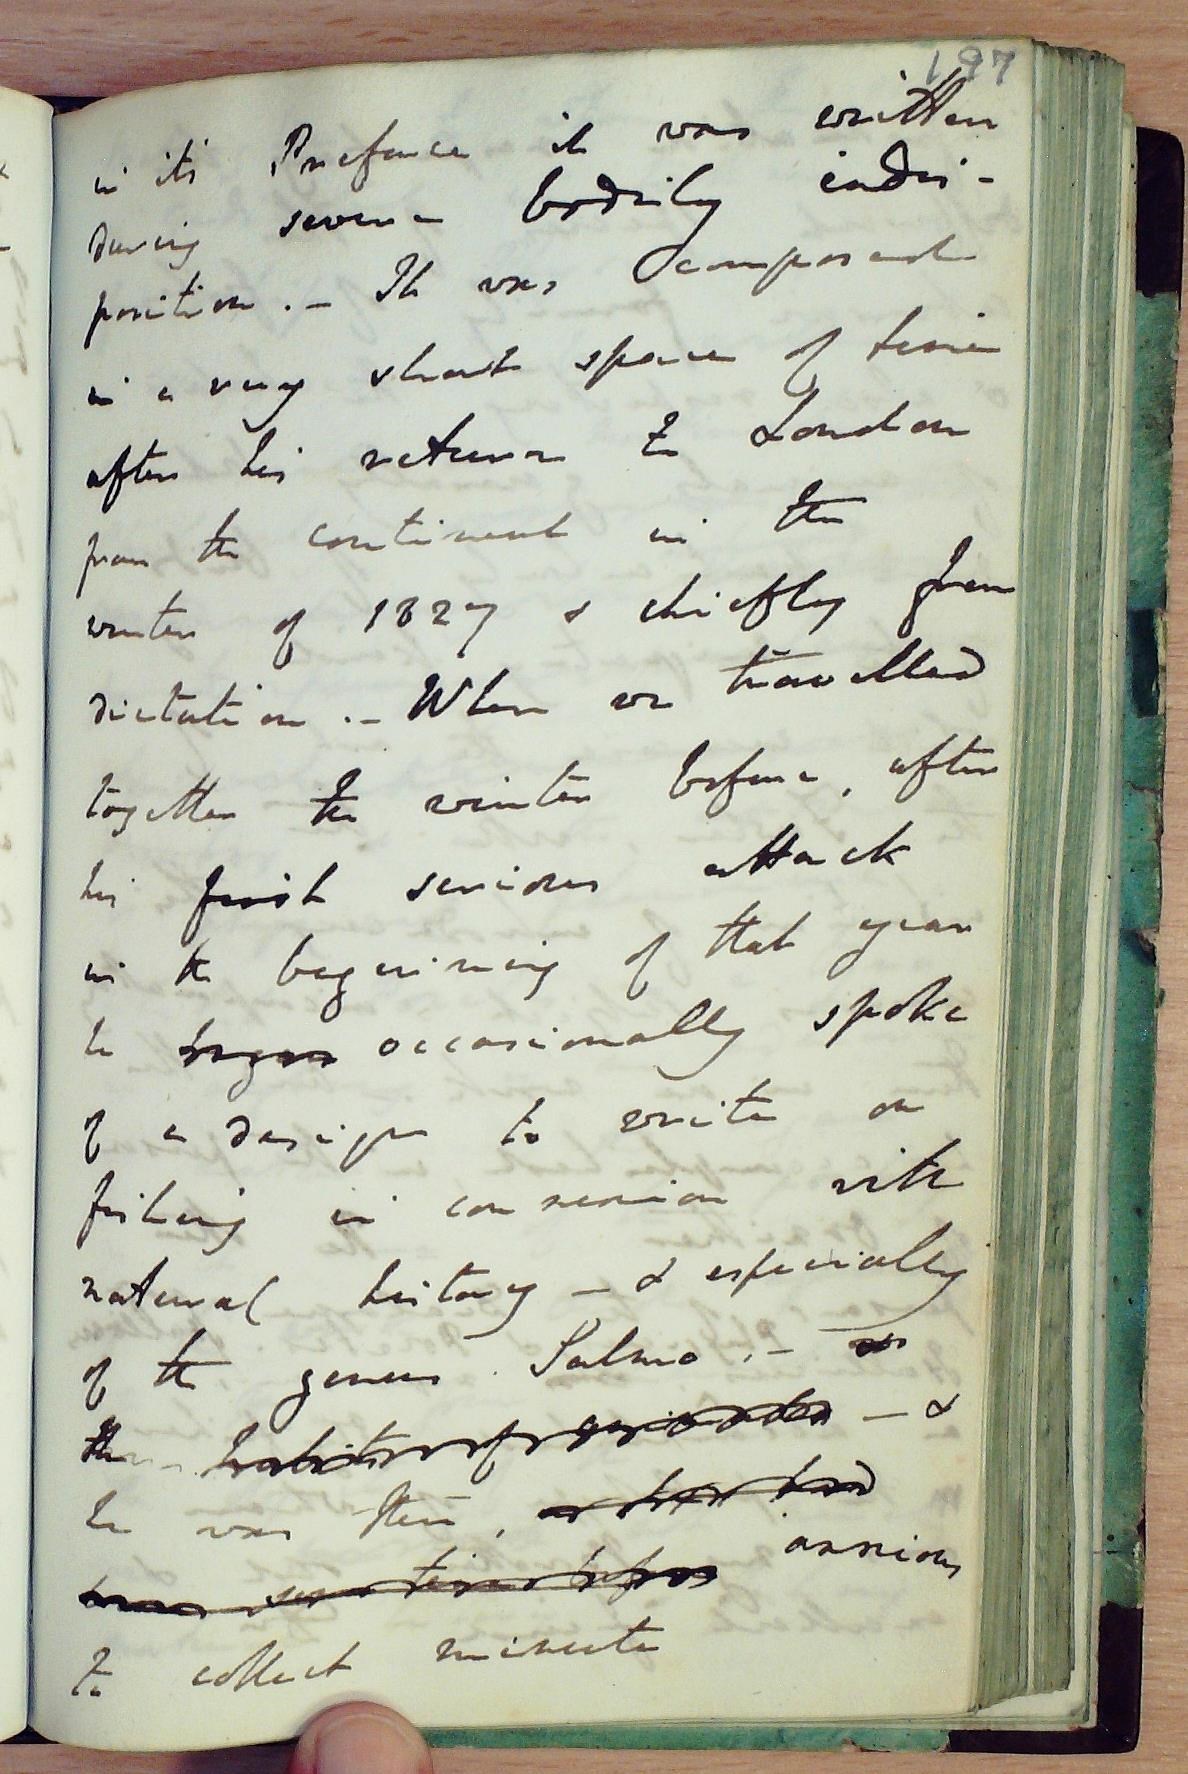 197
in its Preface it was written
during severe bodily indis-
position. – It was composed
in a very short space of time
after his return to London
from the continent in the
winter of 1827 & chiefly from
dictation. – When we travelled
together the winter before, after
his first serious attack
in the beginning of that year
he began occasionally spoke
of a design to write on
fishing in connexion with
natural history – & especially
of the genus Salmo. –
the habits of – &
he was then, as he had
some time before anxious
to collect minute